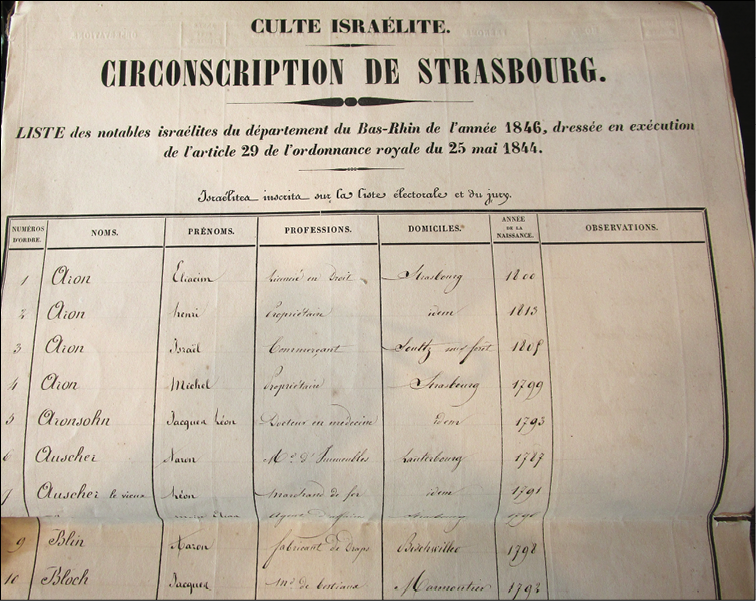 CULTE ISRAÉLITE.
CIRCONSCRIPTION DE STRASBOURG.
LISTE des notables israélites du département du Bas-Rhin de l'année 1846, dressée en exécution
de l'article 29 de l'ordonnance royale du 25 mai 1844.
Israélites inscrits sur la liste électorale et du jury.
NUMÉROS D'ORDRE. NOMS. PRÉNOMS. PROFESSIONS. DOMICILES. ANNÉE DE LA NAISSANCE. OBSERVATIONS.
1 Aron en Droit Strasbourg 1800
2 Aron henri Propriétaire idem 1813
3 Aron Israël Commerçant Soultz sous forêt
4 Aron Michel Propriétaire Strasbourg 1799
5 Aronsohn Jacques Léon Docteur en médecine idem 1793
6 Auscher Aaron Md d'Immeubles Lauterbourg 1787
7 Auscher le vieux Léon Marchand de fer idem 1791
9 Blin Aaron fabricant de Draps Bischwiller 1792
10 Bloch Jacques Md de bestiaux Marmoutier 1792